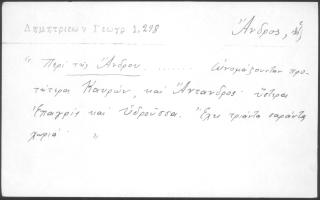 Δημητριέων Γεωγρ 1,298
Ἄνδρος, ἡ,
" Περὶ τῆς Ἄνδρου. ....... ὠνομάζονταν προ-
τύτερα Καυρών, καὶ Ἄντανδρος· ὕστερα
Ἐπαγρὶς καὶ Ὑδροῦσσα. Ἔχει τριάντα σαράντα
χωριά·